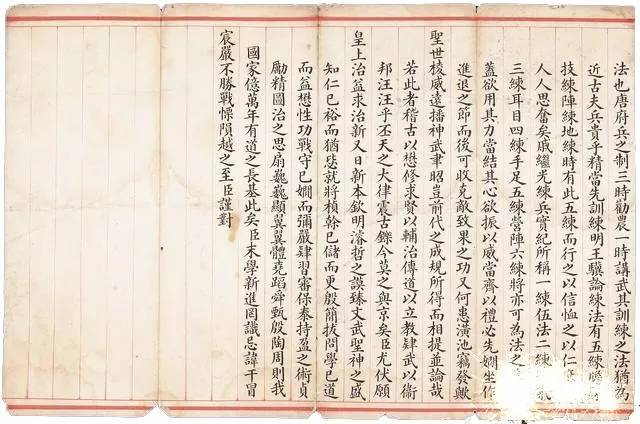 法也唐府兵之制三時勸農一時講武其訓練之法猶為
近古夫兵貴乎精當先訓練明王驥論練法有五練膽
技練陣練地練時有此五練而行之以信恤之以仁
人人思奮矣戚繼光練兵實紀所稱一練伍法二練
三練耳目四練手足五練營陣六練將亦可為法之
蓋欲用其力當結其心欲振以威當齊以禮必先嫻坐作
進退之節而後可收克敵致果之功又何患潢池竊發歟
聖世棱威遠播神武聿昭豈前代之成規所得而相提並論哉
若此者稽古以懋修求賢以輔治傳道以立教肄武以衞
邦汪汪乎丕天之大律震古鑠今莫之與京矣臣尤伏願
皇上治益求治新又日新本欽明濬哲之謨臻文武聖神之盛
知仁已裕而猶悲就將楨幹已儲而更殷簡拔問學已道
而益懋性功戰守已嫻而彌嚴肄習審保泰持盈之術貞
勵精圖治之思扇巍巍顯翼翼體堯蹈舜甄殷陶周則我
國家億萬年有道之長基此矣臣末學新進罔識忌諱干冒
宸嚴不勝戰慄隕越之至臣謹對